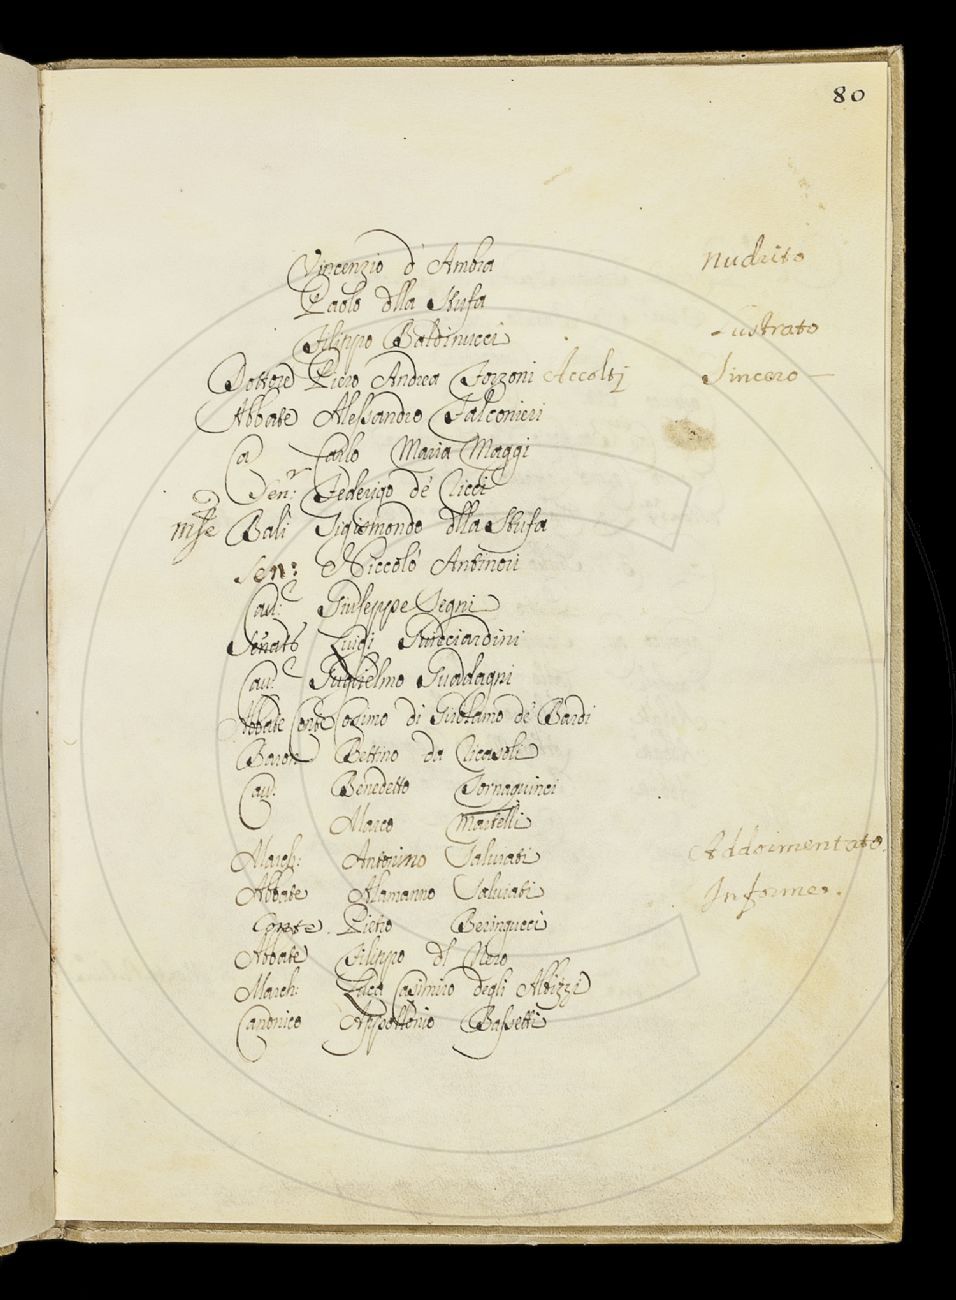 80
Vincenzio d'Ambra Nudrito
Paolo dlla Stufa
Filippo Baldinucci Lustrato
Dottore Piero Andrea Forzoni Accolti Sincero
Abbate Alessandro Falconieri
Carlo Maria Maggi
Senr: Federigo de' Ricci
Mse Bali Sigismondo dlla Stufa
Sen: Niccolò Antinori
Cav: Giuseppe Segni
Senatre Luigi Guicciardini
Cav: Guglielmo Guadagni
Abbate Conte Cosimo di Girolamo de' Bardi
Baron Bettino da Ricasoli
Cav: Benedetto Tornaquinci
Marco Martelli
March: Antonino Salviati Addormentato.
Abbate Alamanno Salviati Informe.
Conte. Pietro Beringucci
Abbate Filippo dl Nero
March: Luca Casimiro degli Albizzi
Canonico Appollonio Bassetti